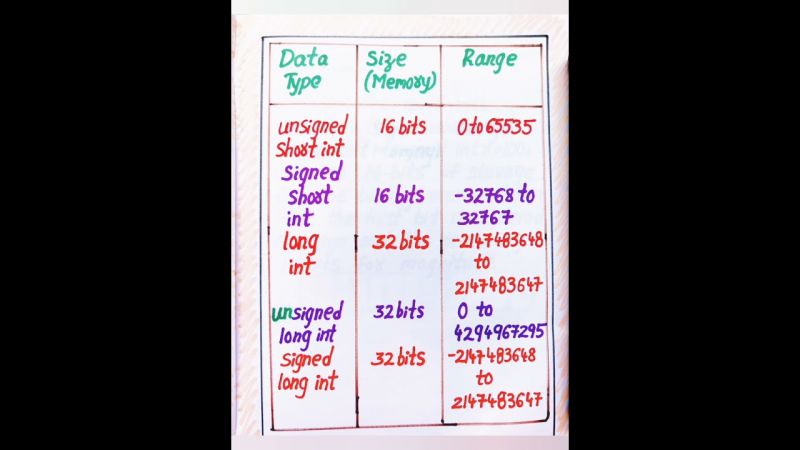 Data Type
Size (Memory)
Range
unsigned short int
16 bits
0 to 65535
signed short int
16 bits
-32768 to 32767
long int
32 bits
-2147483648 to 2147483647
unsigned long int
32 bits
0 to 4294967295
signed long int
32 bits
-2147483648 to 2147483647